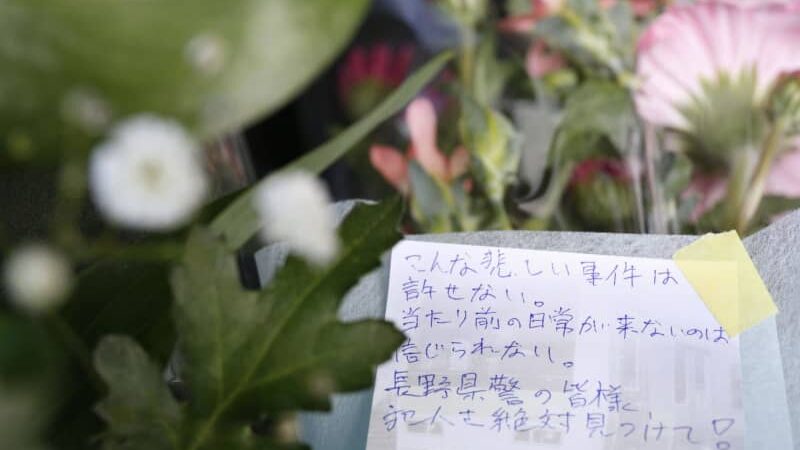 こんな悲しい事件は
許せない。
当たり前の日常が来ないのは
信じられない。
長野県警の皆様
犯人を絶対見つけて!